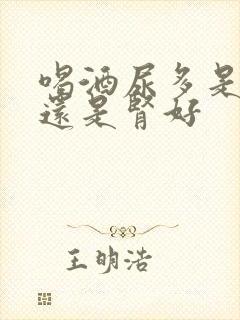 喝酒尿多是
還是腎好
王明浩